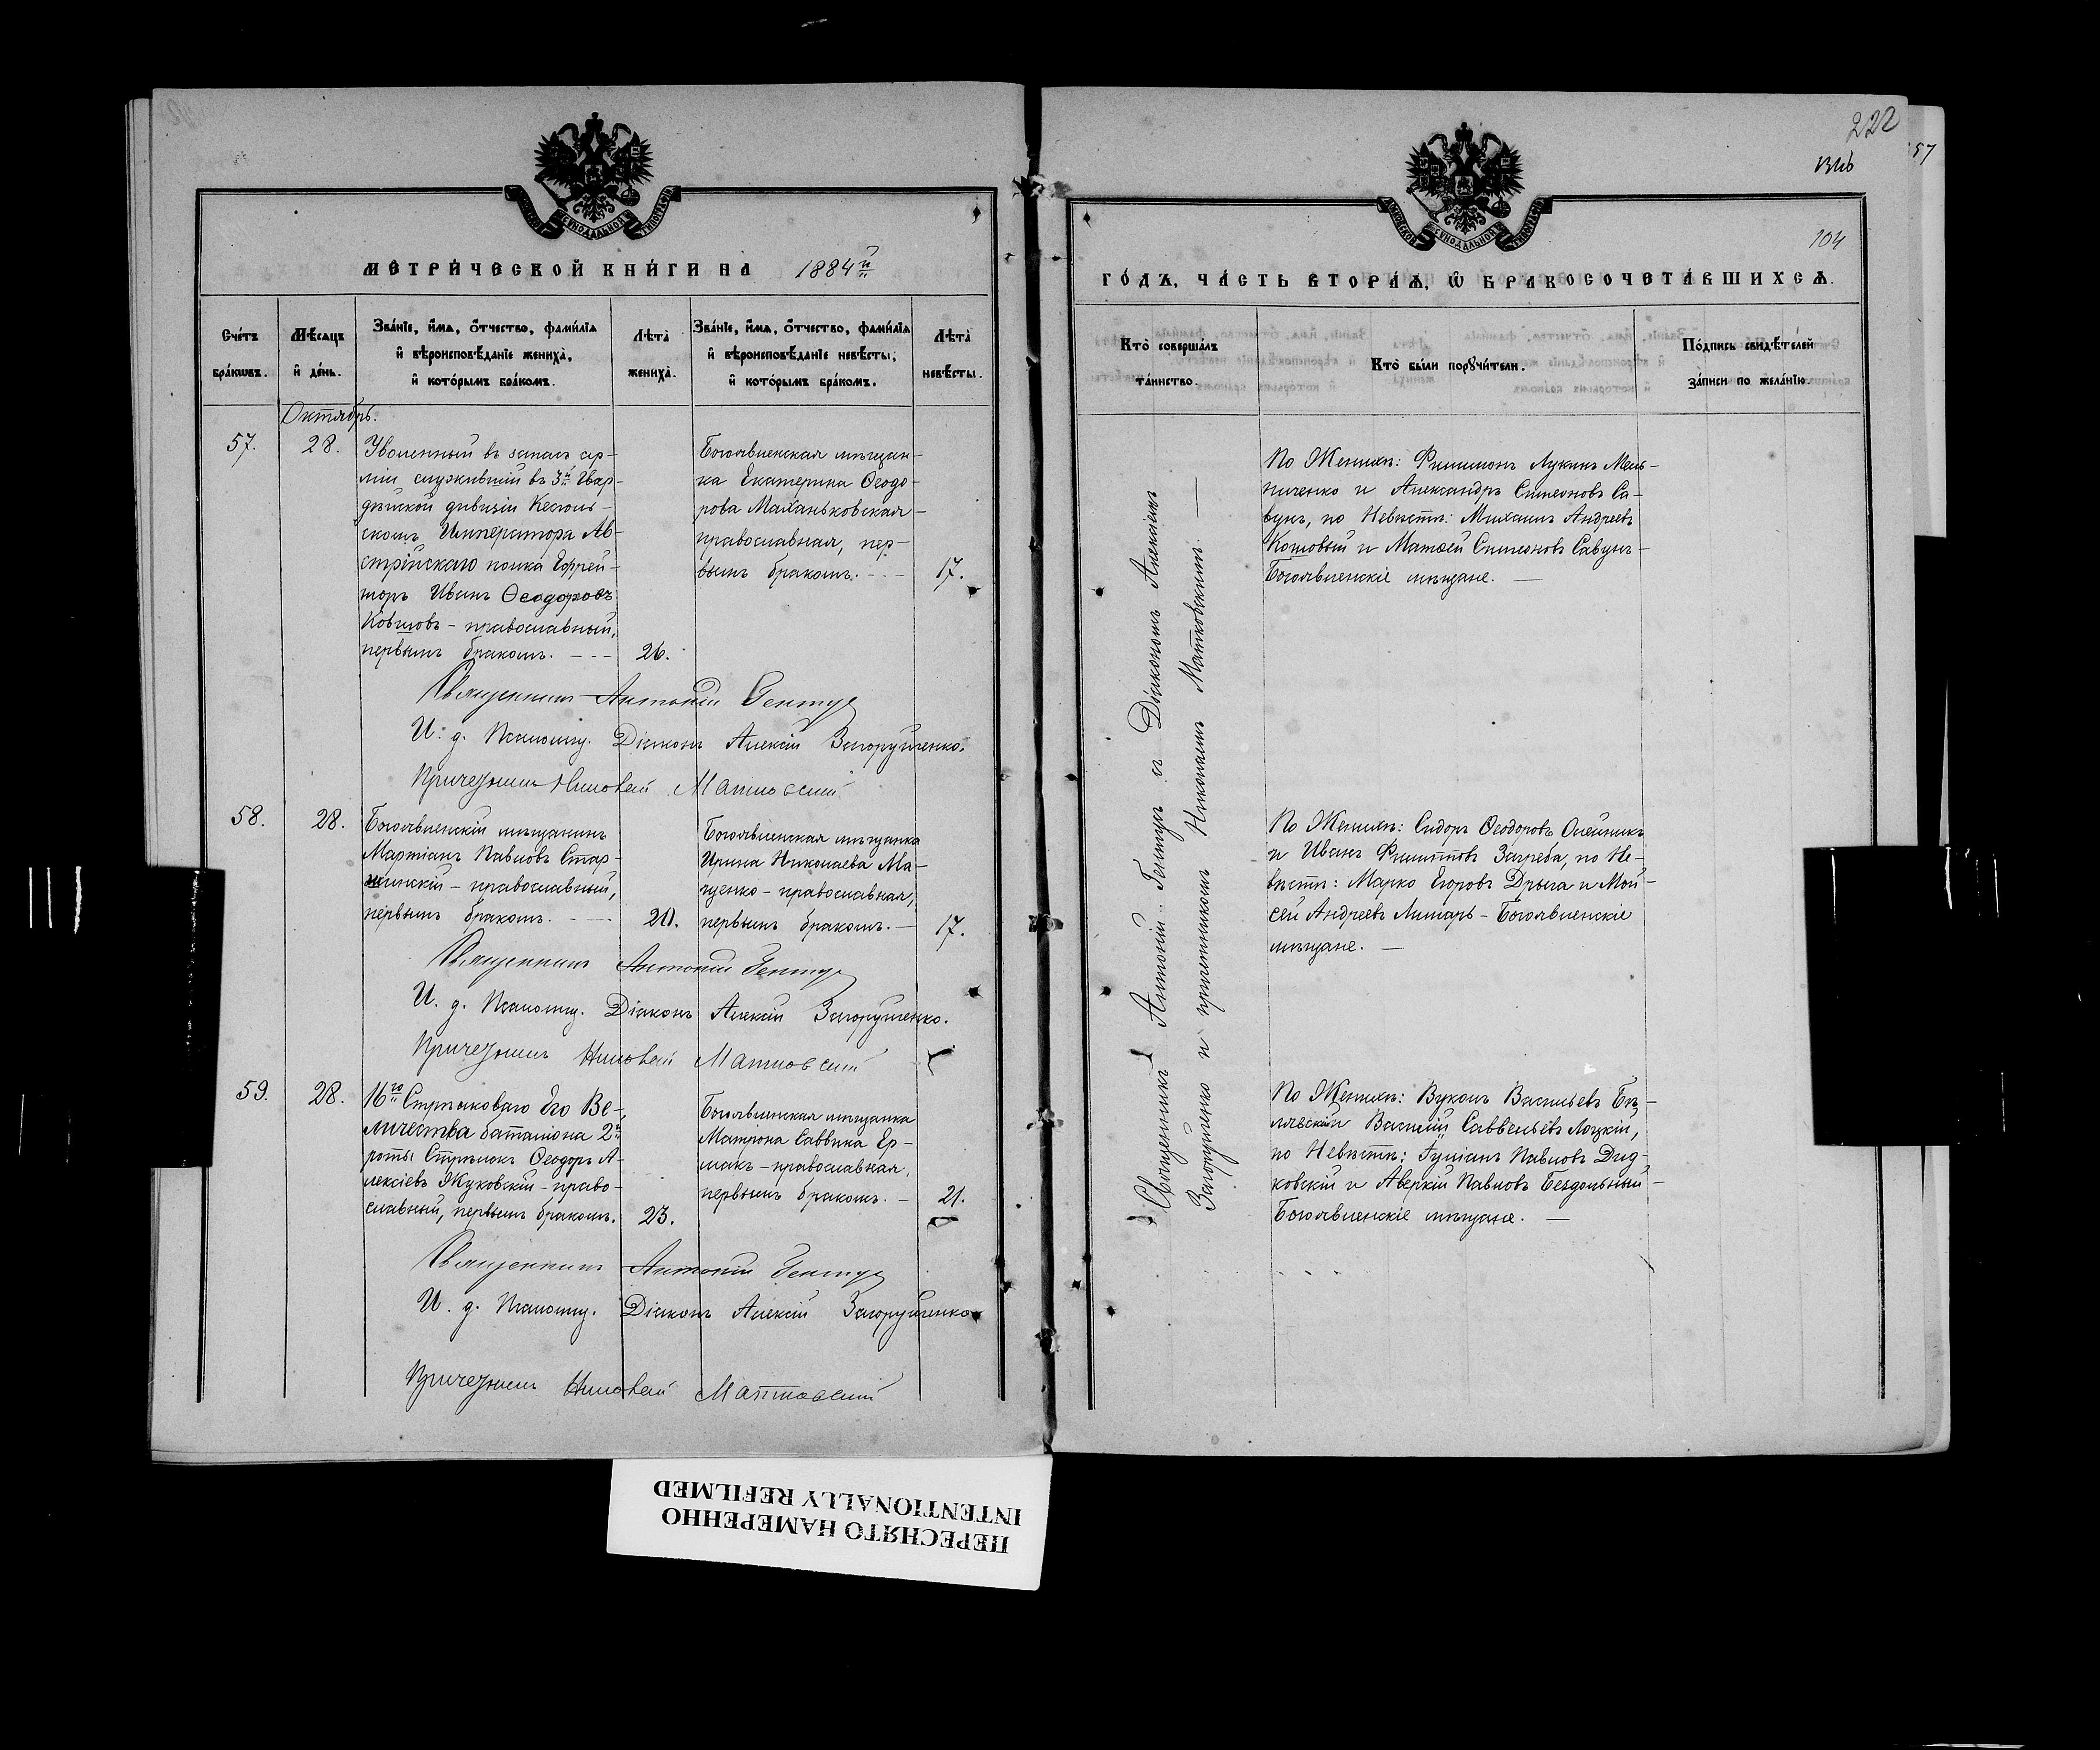 МЕТРИ́ЧЕСКОЙ КНИ́ГИ НА 1884й
Сче́тъ бра́кωвъ.
Мѣ́сяцъ и҆ де́нь.
Зва́нїе, и҆́мѧ, ѻ҆́тчество, фами́лїѧ и҆ вѣроисповѣ́данїе жениха̀, и҆ кото́рымъ бра́комъ.
Лѣ́та жениха̀.
Зва́нїе, и҆́мѧ, ѻ҆́тчество, фами́лїѧ и҆ вѣроисповѣ́данїе невѣ́сты, и҆ кото́рымъ бра́комъ.
Лѣ́та невѣ́сты.
Октябрь.
57.
28.
Уволенный въ запасъ ар-
міи служившій въ 3й Гвар-
дейской дивизіи Кексголь-
скомъ Императора Ав-
стрійскаго полка Ефрей-
торъ Иванъ Ѳеодоровъ
Ковшовъ - православный,
первымъ бракомъ. - - -
26.
Богоявленская мѣщан-
ка Екатерина Ѳеодо-
рова Маханьковская -
православная, пер-
вымъ бракомъ. - -
17.
Священникъ Антоній Гентуръ
И. д. Псаломщ. Діаконъ Алексій Загоруйченко.
Причетникъ Николай Матковскій
58.
28.
Богоявленскій мѣщанинъ
Мартіанъ Павловъ Стар-
жинскій - православный,
первымъ бракомъ. - -
20.
Богоявленская мѣщанка
Ирина Николаева Ма-
щенко - православная,
первымъ бракомъ. -
17.
Священникъ Антоній Гентуръ
И. д. Псаломщ. Діаконъ Алексій Загоруйченко.
Причетникъ Николай Матковскій
59.
28.
16го Стрѣлковаго Его Ве-
личества баталіона 2й
роты Стрѣлокъ Ѳеодоръ А-
лексіевъ Жуковскій - право-
славный, первымъ бракомъ.
23.
Богоявленская мѣщанка
Матрона Саввина Ер-
макъ - православная,
первымъ бракомъ. -
21.
Священникъ Антоній Гентуръ
И. д. Псаломщ. Діаконъ Алексій Загоруйченко
Причетникъ Николай Матковскій
222
57
104
ГО́ДЪ, ЧА́СТЬ ВТОРА́Ѧ, Ѡ҆ БРАКОСОЧЕТА́ВШИХСѦ.
Кто̀ соверша́лъ та́инство.
Кто̀ бы́ли порꙋчи́тели.
По́дпись свидѣ́телей за́писи по жела́нїю.
Священникъ Антоній Гентуръ съ Діакономъ Алексіемъ
Загоруйченко и причетникомъ Николаемъ Матковскимъ. —
По Женихѣ: Филимонъ Лукинъ Мель-
ниченко и Александръ Симеоновъ Са-
вукъ, по Невѣстѣ: Михаилъ Андреевъ
Кошовый и Матѳей Симеоновъ Савукъ -
Богоявленскіе мѣщане. —
По Женихѣ: Сидоръ Ѳеодоровъ Олейникъ
и Иванъ Филипповъ Загреба, по Не-
вѣстѣ: Марко Егоровъ Дрыга и Мой-
сей Андреевъ Лимарь - Богоявленскіе
мѣщане. —
По Женихѣ: Вуколъ Васильевъ Бѣ-
лявскій и Василій Савельевъ Лоцкій,
по Невѣстѣ: Гуліанъ Павловъ Дид-
ковскій и Аверкій Павловъ Бездольный -
Богоявленскіе мѣщане. —
ПЕРЕСНЯТО НАМЕРЕННО
INTENTIONALLY REFILMED